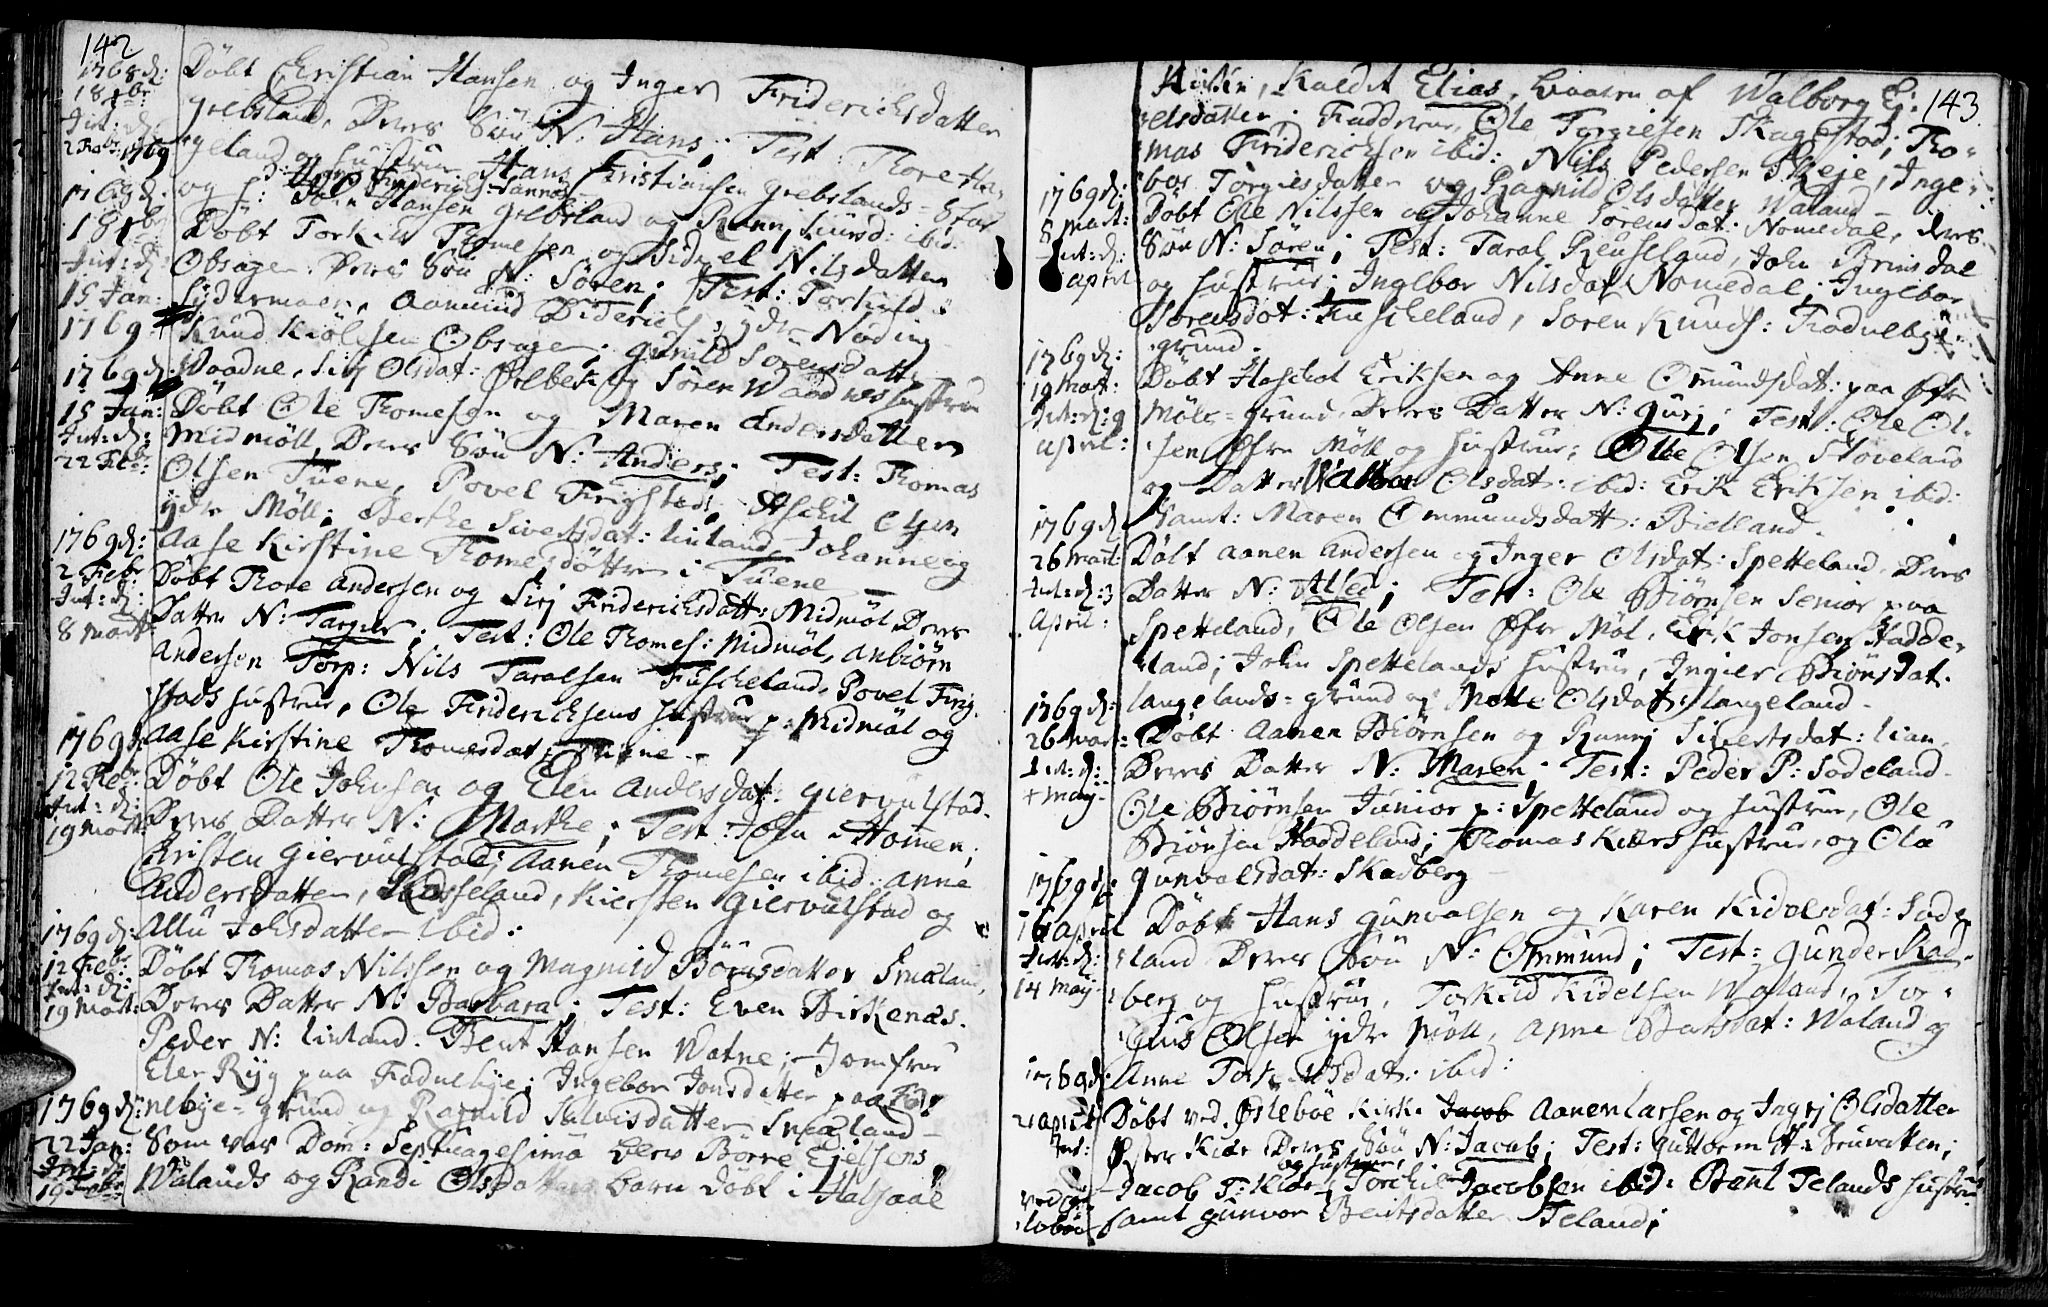 142
1768 d:
18 xbr:
Int: d:
2 Febr: 1769
Døbt Christian Hansen og Inger Friderichsdatter
Grebsland, Deres Søn N: Hans; Test: Thore Han
geland og Hustrue, Hans Christiansen Greblands
og John Hansen Grebsland og Ranni Siursd: ibid:
1768 d:
18 xbr
Int: d:
15 Jan:
1769
Døbt Torkild Thomesen og Sidzel Nilsdatter
Obsager. Deres Søn N: Søren; Test: Torkild
Lydermoen, Aanund Diderichs: ydr Noding
Knud Kiølsen Obsager, Gunild Sørensdatter
Vaadne, Sirj Olsdat: Ørebek og Søren Waadnes Hustrue
1769 d:
15 Jan:
Int: d:
22 Feb:
Døbt Ole Thomesen og Maren Andersdatter
Midmøll, Deres Søn N: Anders; Test: Thomas
Olsen Tuene, Povel Frigsted, Aschil Olsen
ydr Møll; Berthe Sivertsdat: Linland, Johanne og
Aase Kirstine Thomesdøttre i Tuene
1769 d:
2 Febr
Int: d:
8 Mart
Døbt Thore Andersen og Sirj Friderichsdatt: Midmøl Deres
Datter N: Targier; Test: Ole Thomes: Midmøl, Anbiørn
Andersen Torp: Nils Taralsen Fuscheland, Povel Frig-
stads Hustrue, Ole Friderichsens Hustrue p: Midmøl og
Aase Kirstine Thomesdat: Tuene
1769 d:
12 Febr:
Int: d:
19 Mart:
Døbt Ole Johnsen og Elen Andersdat: Giervulstad.
Deres Datter N: Marthe; Test: John Homen;
Christen Giervulstad; Aanen Thomesen ibid: Anne
Andersdatter, Rosseland, Kiersten Giervulstad og
Allu Johsdatter ibid:
1769 d:
12 Feb:
Int: d:
19 Mart:
Døbt Thomas Nilssen og Magnild Børresdatter Smæland,
Deres Datter N: Barbara; Test: Even Birkenæs.
Peder N: Linland. Bent Hansen Watne; Jomfrue
Elen Ryg paa Fadnebye; Ingebor Jonsdatter paa Fad-
nebye-grund og Ragnild Salvisdatter Smæland
1769 d:
22 Jan:
Int: d:
19 Febr:
Som var Dom: Septuagesima blev Børre Ejelsens
Wålands og Randi Olsdatters barn døbt i Halsaae

143
Kirken, Kaldet Elias, baaren af Walborg Ej-
elsdatter; Faddrene, Ole Torgiesen Skagestad; Tho-
mas Friderichsen ibid: Nils Pedersen Skeje, Inge-
bor Torgiesdatter og Ragnild Olsdatter Waland
1769 d:
5 Mart:
Int: d:
April
Døbt Ole Nilssen og Johanne Sørensdat: Nomedal, deres
Søn N: Søren; Test: Taral Reuseland, John Brinsdal
og Hustrue; Ingebor Nilsdat: Nomedal; Ingebor
Sørensdat: Fuscheland, Søren Knuds: Fadnebye-
grund.
1769 d:
19 Mart:
Int: d: 9
April:
Døbt Haschol Eriksen og Anne Omundsdat: paa Øfr
Møll-grund, Deres Datter N: Gurj; Test: Ole Ol-
sen Øfre Møll og Hustrue; Olle Olsen Stoveland
og Datter Walbor Olsdat: ibid: Erik Eriksen ibid:
samt: Maren Ommundsdatt: Bielland.
1769 d:
26 Mart
Int: d: 3
April:
Døbt Aanen Andersen og Inger Olsdat: Spetteland, Deres
Datter N: Alled; Test: Ole Biørnsen Senior paa
Spetteland, Ole Olsen Øfre Møl, Erik Jonsen Hadde-
land; John Spettelands Hustrue, Ingier Biørnsdat:
Langelands-grund og Mette Olsdat: Langeland.
1769 d:
26 Mar:
Int: d:
May
Døbt Aanen Biørnsen og Runnj Sivertsdat: Lian,
Deres Datter N: Maren; Test: Peder P: Sodeland-
Ole Biørnsen Junior p: Spetteland og Hustrue, Ole
Biørnsen Haddeland; Thomas Kiærs Hustrue, og Olu
Gunvalsdat: Skadberg
1769 d:
16 April
Int: d:
14 May
Døbt Hans Gunvalsen og Karen Kidelsdat: Sode-
land Deres Søn N: Ommund; Test: Gunder Skad-
berg og Hustrue, Torkild Kidelsen Waland, Tor-
gius Olsen ydr Møll, Anne Bentsdat: Waland og
Anne Torkeldsdat: ibid:
1769 d:
21 April
Int:
ved Øs-
lebøe
Døbt ved Øslebøe Kirke Jacob Aanen Larsen og Ingrj Olsdatter
Øster Kiær Deres Søn N: Jacob; Test: Guttorm H: Struvatten;
og Hustrue,
Jacob T: Kiær, Torchil Jacobsen ibid: Bent Telands Hustrue
samt Gunvor Bentsdatter Teland;